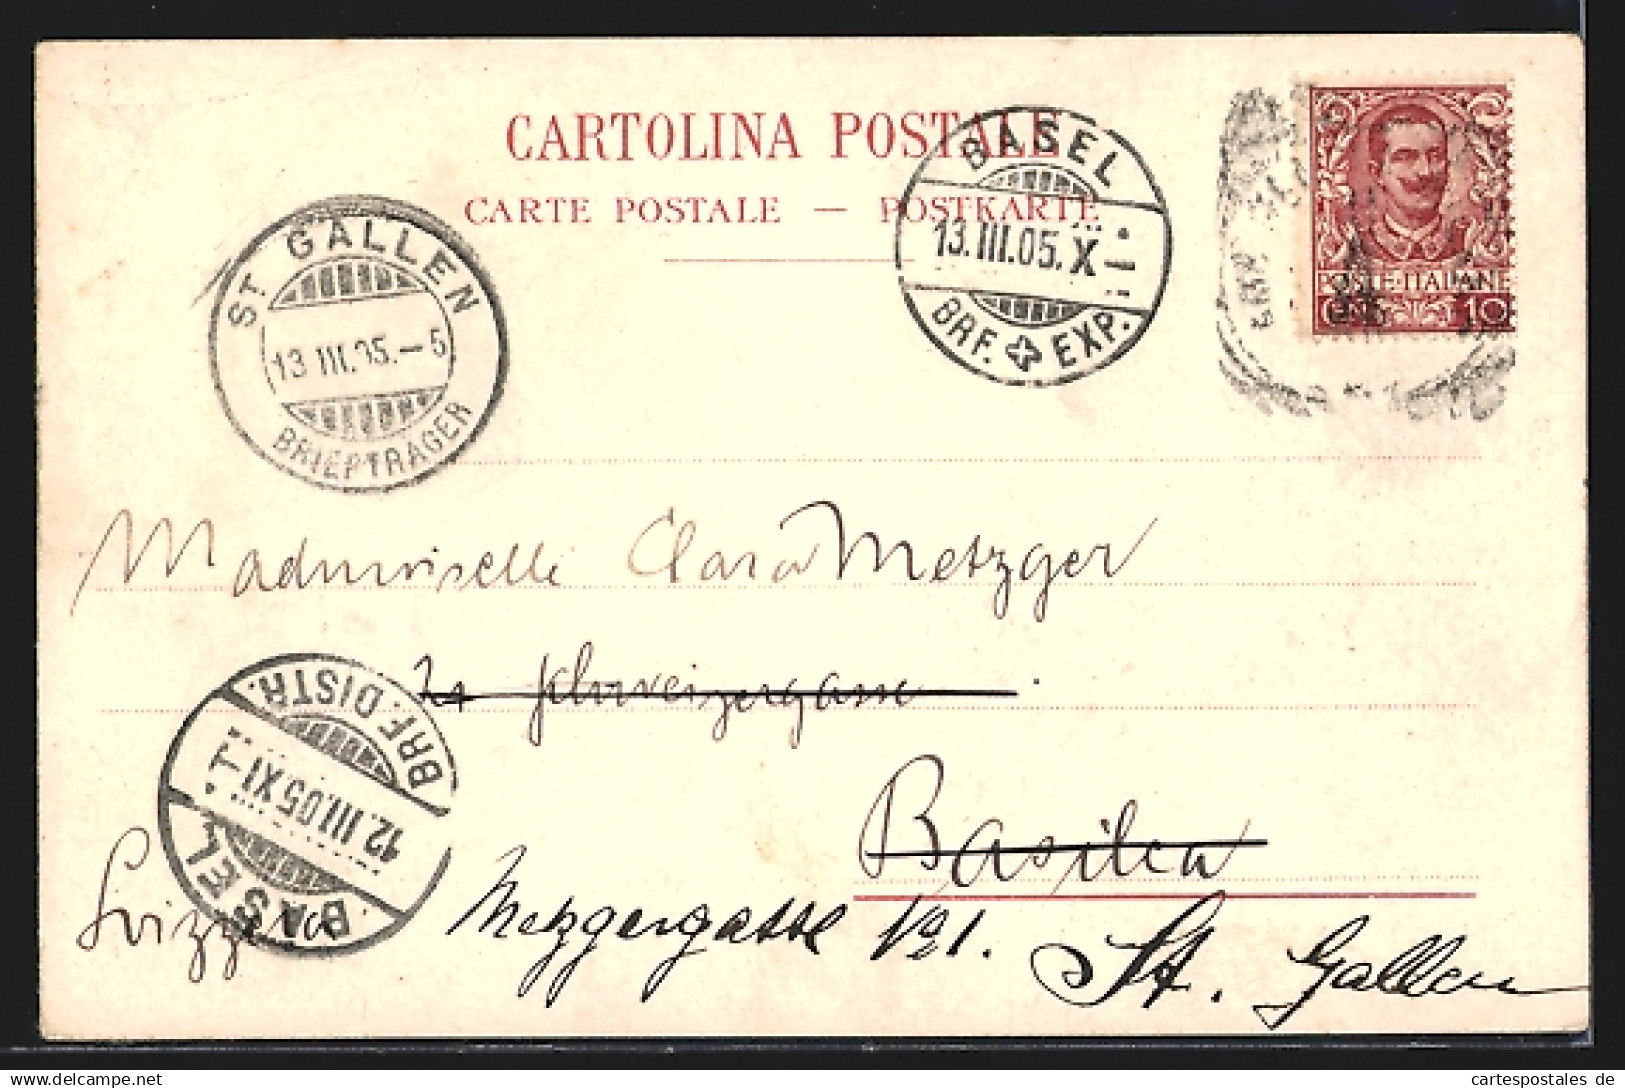 CARTOLINA POSTALE
CARTE POSTALE — POSTKARTE
ST. GALLEN
13 III.05.–5
BRIEFTRÄGER
BASEL
13.III.05.X
BRF. EXP.
POSTE·ITALIANE
10
Mademoiselle Clara Metzger
Schweizergasse
Basilea
BRF. DISTR.
12.III.05 XI
BASEL
Svizzera
Metzgergasse No 1.
St. Gallen
cartespostales de